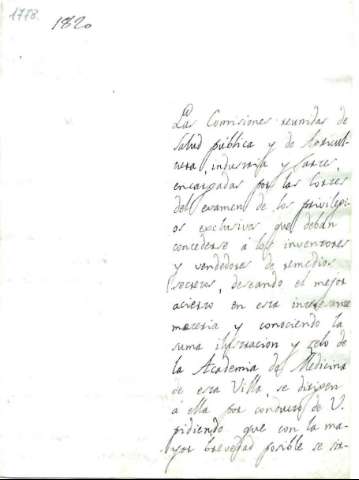 1778.
1820
Las Comisiones reunidas de
Salud pública y de Agricul-
tura, industria y Artes,
encargadas por las Cortes
del examen de los privilegi-
os exclusivos que deban
concederse á los inventores
y vendedores de remedios
secretos, deseando el mejor
acierto en esta interesante
materia y conociendo la
suma ilustracion y zelo de
la Academia de Medicina
de esta Villa, se dirijen
á ella por conducto de V.
pidiendo que con la ma-
yor brevedad posible se sir-